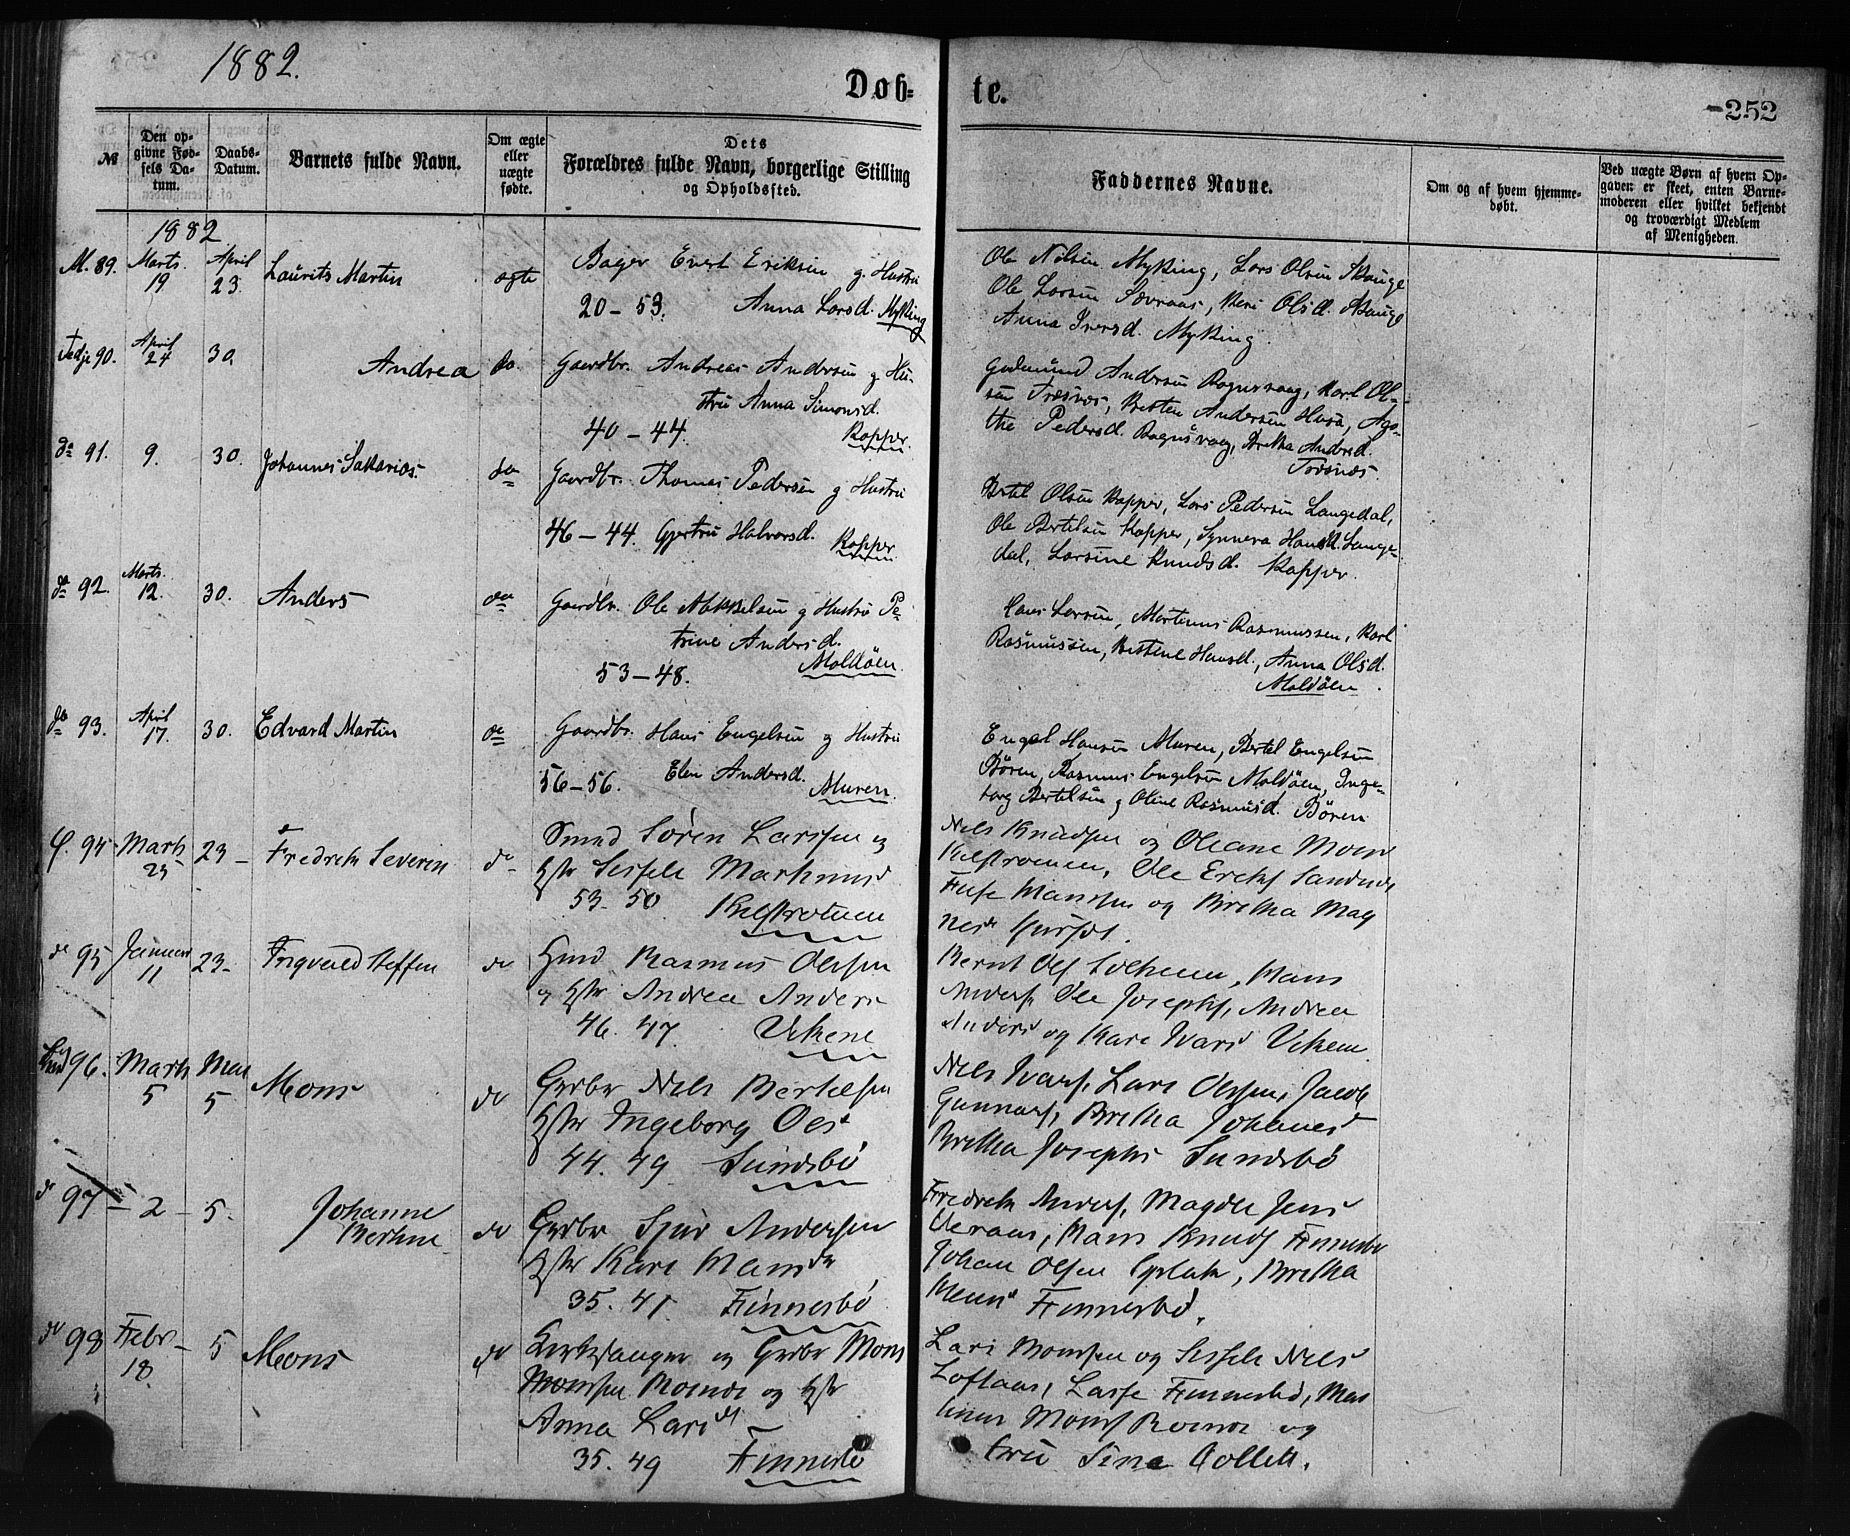 1882.
Döb-
te.
252
№
Den op-
givne Fød-
sels Da-
tum.
Daabs-
Datum.
Barnets fulde Navn.
Om ægte
eller
uægte
fødte.
Dets
Forældres fulde Navn, borgerlige Stilling
og Opholdssted.
Faddernes Navne.
Om og af hvem hjemme-
døbt.
Ved uægte Børn af hvem Op-
gaven er skeet, enten Barne-
moderen eller hvilket bekjendt
og troværdigt Medlem
af Menigheden.
1882
M. 89.
Marts
19
April
23.
Laurits Martin
ægte
Bager Evert Eriksen g Hustru
20 – 53. Anna Larsd. Myking
Ole Nilsen Myking, Lars Olsen Skauge
Ole Larsen Sævraas, Olsd. Skauge
Anna Iversd. Myking.
90.
April
24
30.
Andrea
do.
Gaardbr. Andreas Andersen g Hu-
stru Anna Simonsd.
40 – 44. Kopper
Gudmund Andersen Rognsvaag, Karl Ol-
sen Træsnes, Andersen Husa, Aga-
the Pedersd. Rognsvaag, Britha Andersd.
Træsnes.
do 91.
9.
30.
Johannes Sakarias.
do
Gaardbr. Thomas Pedersen g Hustru
46 – 44. Gjertru Halvorsd. Kopper
Bertel Olsen Kopper, Lars Pedersen Langedal,
Ole Bertelsen Kopper, Synneva Hansd. Lange-
dal, Larsine Knudsd. Kopper.
do 92.
Marts.
12.
30.
Anders
do
Gaardbr. Ole Mikkelsen g Hustru Pe-
trine Andersd.
53 – 48. Moldöen.
Hans Larsen, Martinus Rasmussen, Karl
Rasmussen, Hansd., Anna Olsd.
Moldöen.
do 93.
April
17.
30.
Edvard Martin
do
Gaardbr. Hans Engelsen g Hustru
56–56. Elen Andersd. Muren.
Engel Hansen Muren, Bertel Engelsen
Bören, Rasmus Engelsen Moldöen, Inge-
borg Bertelsen g Oline Rasmusd. Bören
94
Marts
25
23 –
Fredrik Severin
do
Smed Sören Larssen og
Hstr Sissele Markusd
53. 50.
Nils Knudsen og Oleane
Ole Sandnæs
Hanssen og Britha Mag
do 95
Januar
11
23 –
Steffen
do
Hmd Rasmus Olssen
og Hstr Andrea Anders
46. 47. Vikene
Bernt Hans
Anders, Ole Josephs, Andrea
Anders og Kari Ivars Vikene.
96.
Marts
5
Mai
5
Mons
do
Grdbr Nils Bertelsen
Hstr Ingeborg Olsd
44. 49 Sundsbö
Nils Ivars, Lars Olssen, Jacob
Gunnars, Britha Johanes
Britha Josephs Sundsbö
do 97
2 –
5.
Johanne
Berthine
do
Grdbr Sjur Andersen
Hstr Kari Hansdr
35. 41 Finnesbö
Fredrik Anders, Magdle Jens
Hans Knuds Finnesbö
Johan Olsen Britha
Finnesbö.
do 98
Febr –
18.
5
Mons
do
Kirkesanger og Grdbr Mons
Monssen og Hstr
Anna Larsdt
35. 49 Finnesbö
Lars Monssen og Sissele Nils
Loftaas, Lasse Finnesbö,
Mons og
fru Sina Collett.